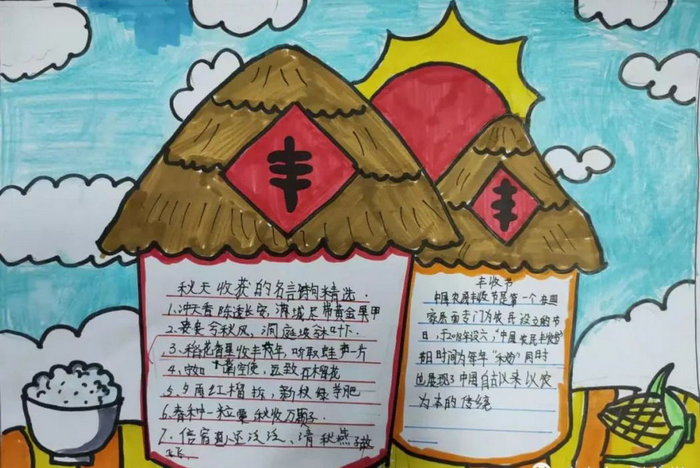 丰
丰
秋天收获的名言诗句精选.
1、冲天香阵透长安,满城尽带黄金甲
2、秋风,洞庭
3、稻花香里说丰年,听取蛙声一片
4、
5、夕雨红榴拆,新秋绿芋肥
6、春种一粒粟秋收万颗子
7、信宿泛泛、清秋燕子故
丰收节
中国农民丰收节是第一个在国
家层面专门为农民设立的节
日,于2018年设立,"中国农民丰收节"
节日时间为每年"秋分"同时
也展现了中国自古以来以农
为本的传统